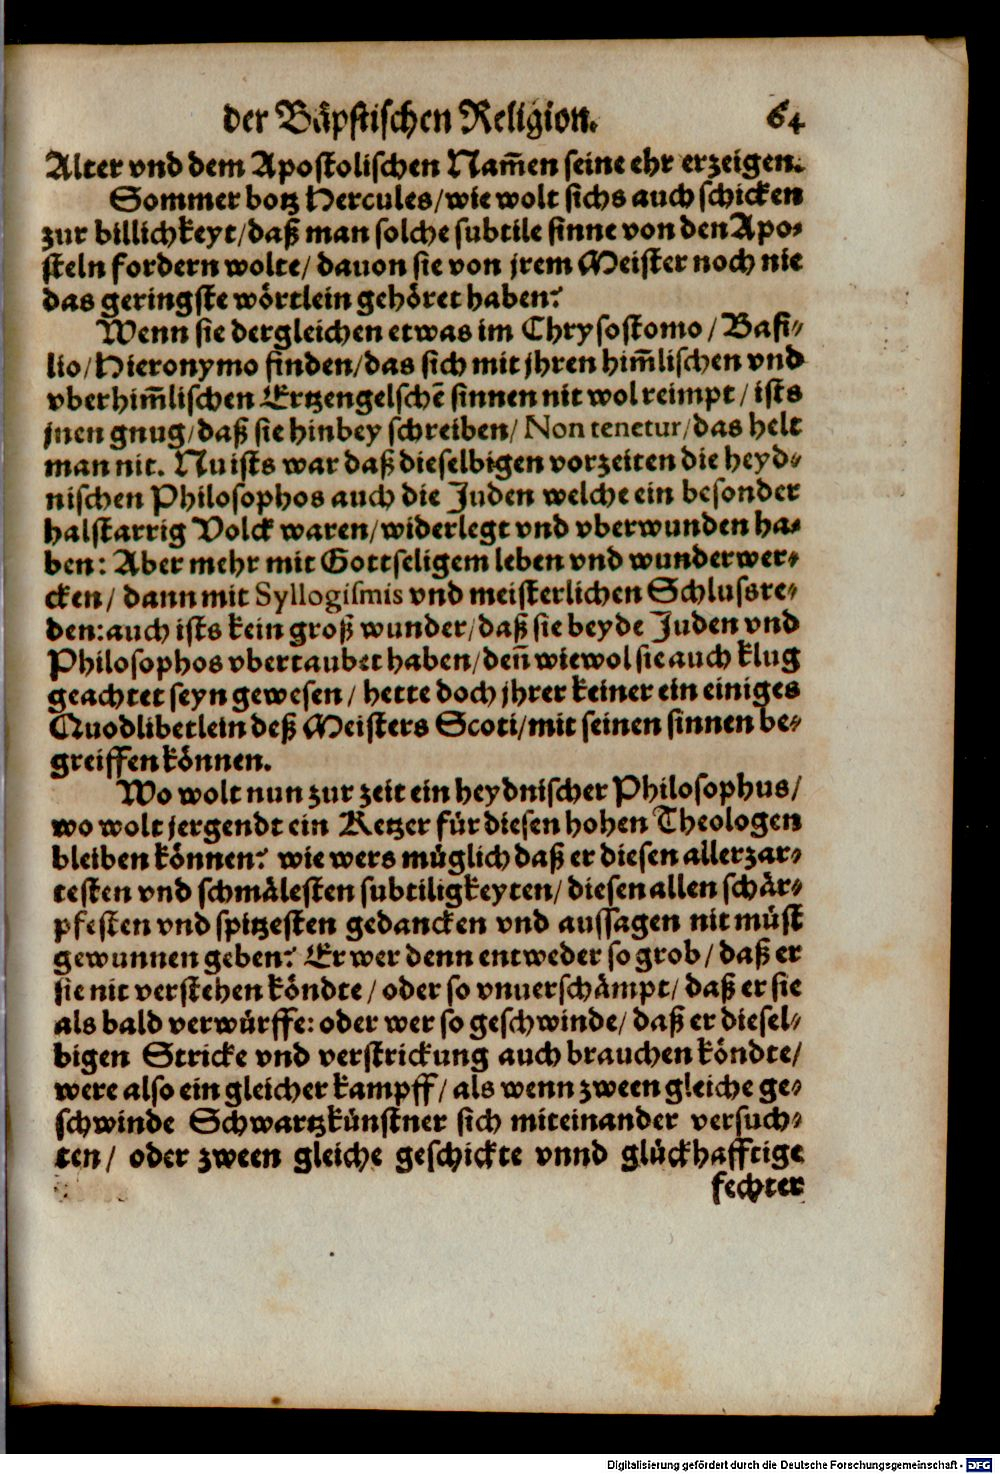 der Bäpstischen Religion. 64
Alter vnd dem Apostolischen Nam̃en seine ehr erzeigen.
Sommer botz Hercules/wie wolt sichs auch schicken
zur billichkeyt/daß man solche subtile sinne von den Apo-
steln fordern wolte/ dauon sie von jrem Meister noch nie
das geringste wörtlein gehöret haben?
Wenn sie dergleichen etwas im Chrysostomo/Basi-
lio/Hieronymo finden/das sich mit jhren him̃lischen vnd
vberhim̃lischen Ertzengelschẽ sinnen nit wol reimpt/ists
jnen gnug/daß sie hinbey schreiben/ Non tenetur/das helt
man nit. Nu ists war daß dieselbigen vorzeiten die heyd-
nischen Philosophos auch die Juden welche ein besonder
halstarrig Volck waren/widerlegt vnd vberwunden ha-
ben: Aber mehr mit Gottseligem leben vnd wunderwer-
cken/ dann mit Syllogismis vnd meisterlichen Schlussre-
den:auch ists kein groß wunder/daß sie beyde Juden vnd
Philosophos vbertaubet haben/deñ wiewol sie auch klug
geachtet seyn gewesen/ hette doch jhrer keiner ein einiges
Quodlibetlein deß Meisters Scoti/mit seinen sinnen be-
greiffen können.
Wo wolt nun zur zeit ein heydnischer Philosophus/
wo wolt jergendt ein Ketzer für diesen hohen Theologen
bleiben können? wie wers müglich daß er diesen allerzar-
testen vnd schmälesten subtiligkeyten/diesen allen schär-
pfesten vnd spitzesten gedancken vnd aussagen nit müst
gewunnen geben? Er wer denn entweder so grob/daß er
sie nit verstehen köndte/oder so vnuerschämpt/daß er sie
als bald verwürffe: oder wer so geschwinde/daß er diesel-
bigen Stricke vnd verstrickung auch brauchen köndte/
were also ein gleicher kampff/als wenn zween gleiche ge-
schwinde Schwartzkünstner sich miteinander versuch-
ten/ oder zween gleiche geschickte vnnd glückhafftige
fechter
Digitalisierung gefördert durch die Deutsche Forschungsgemeinschaft - DFG